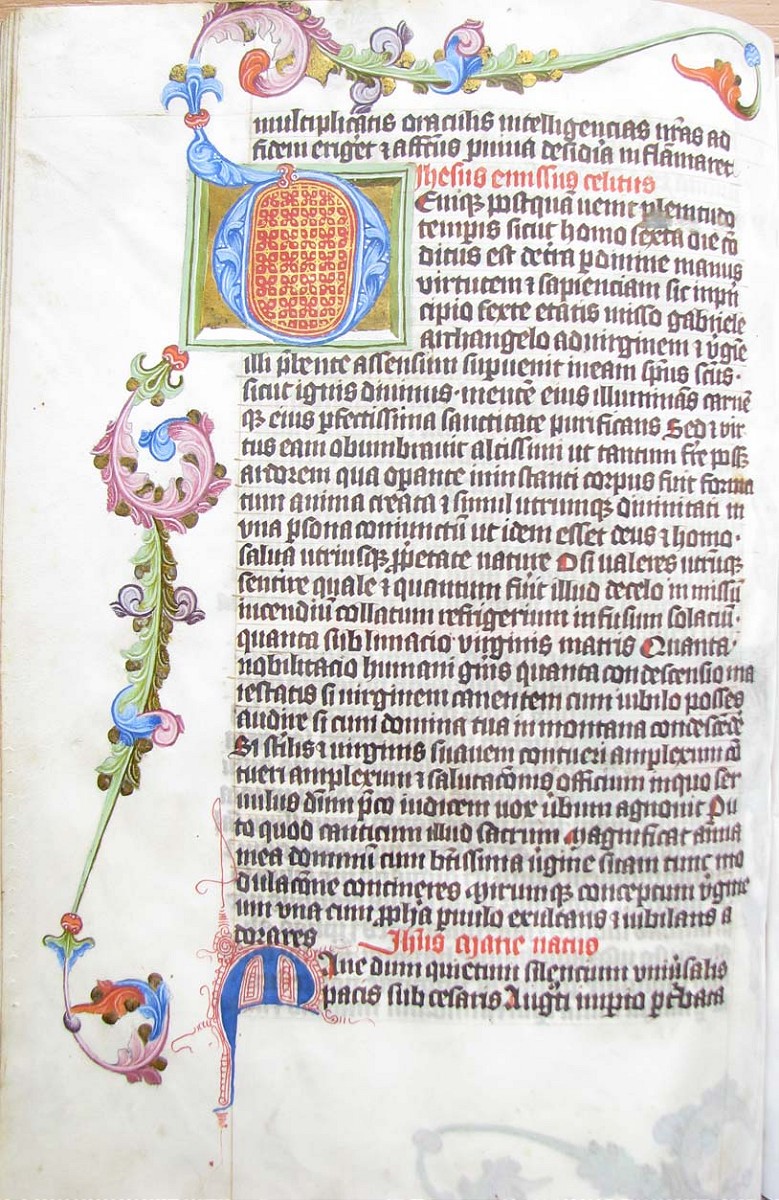 multiplicatis oraculis intelligencias nr̄as ad
fidem eriger̄t ⁊ affcūs p̄ nimia desidia inflāmaret
Jhesus emissus celitus
Deniqꝫ postquā uenit plenitudo
temp̄is sicut homo sexta die cō
ditus est de tr̄a ꝑ diuine manus
virtutem ⁊ sapienciam sic in pn̄
cipio sexte etatis misso gabriele
archangelo ad virginem ⁊ v̄gīe
illi p̄bente assensum sup̄uenit in eam sp̄us sc̄us·
sicut ignis diuinus· mentē eius illumināns carnē
qꝫ eius ꝑfectissima sanctitate purificans Sed ⁊ vir
tus eam obumbrauit altissimi ut tantum fr̄e possꝫ
ardorem qua oꝑante in instanti corpus fuit forma
tum anima creata ⁊ simul utrumqꝫ diuinitati in
vna ꝑsona coniunctū ut idem esset deus ⁊ homo·
salua utriusqꝫ ꝓp̄etate nature O si ualeres utcūqꝫ
sentire quale ⁊ quantum fūit illud de celo in missū
incendiū collatum refrigerium infusum solaciū·
quanta sublimacio virginis matris Quanta·
nobilitacio humani gn̄is quanta condescensio ma
iestatis si virginem canentem cum iubilo posses
audire si cum domina tua in montana condescēdē
Si st̄ilis ⁊ virginis suauem contueri amplexum cō
tueri amplexum ⁊ salutacōnis officium in quo ser
uulus dn̄m p̄co iudicem uox ūbum agnouit Pu
to quod canticum illud sacrum Magnificat anīa
mea dominū cum bt̄issima v̄gine suam tunc mo
dulacōne concineres mirumqꝫ conceptum v̄gine
um vna cum ꝓph̄a ꝑuulo exultans ⁊ iubilans a
dorares
Jhūs marie natus
Nue dum quietum silencium vniūsalis
pacis sub cesaris Augᵗi imꝑio ꝑt̄bata